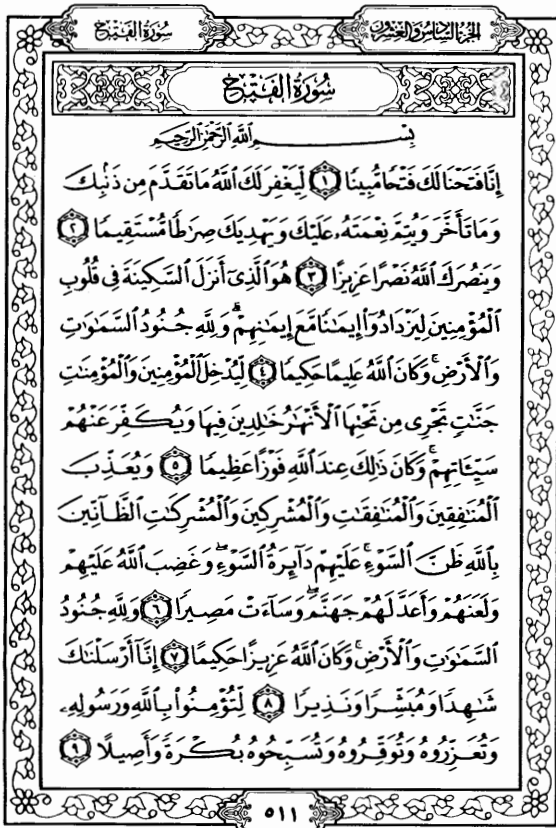 الجزء السادس والعشرون
سورة الفتح
سُورَةُ الفَتْحِ
بِسْمِ اللَّهِ الرَّحْمَٰنِ الرَّحِيمِ
إِنَّا فَتَحْنَا لَكَ فَتْحًا مُّبِينًا ١ لِّيَغْفِرَ لَكَ اللَّهُ مَا تَقَدَّمَ مِن ذَنبِكَ
وَمَا تَأَخَّرَ وَيُتِمَّ نِعْمَتَهُۥ عَلَيْكَ وَيَهْدِيَكَ صِرَٰطًا مُّسْتَقِيمًا ٢
وَيَنصُرَكَ اللَّهُ نَصْرًا عَزِيزًا ٣ هُوَ الَّذِىٓ أَنزَلَ السَّكِينَةَ فِى قُلُوبِ
الْمُؤْمِنِينَ لِيَزْدَادُوٓا۟ إِيمَٰنًا مَّعَ إِيمَٰنِهِمْ ۗ وَلِلَّهِ جُنُودُ السَّمَٰوَٰتِ
وَالْأَرْضِ ۚ وَكَانَ اللَّهُ عَلِيمًا حَكِيمًا ٤ لِّيُدْخِلَ الْمُؤْمِنِينَ وَالْمُؤْمِنَٰتِ
جَنَّٰتٍ تَجْرِى مِن تَحْتِهَا الْأَنْهَٰرُ خَٰلِدِينَ فِيهَا وَيُكَفِّرَ عَنْهُمْ
سَيِّـَٔاتِهِمْ ۚ وَكَانَ ذَٰلِكَ عِندَ اللَّهِ فَوْزًا عَظِيمًا ٥ وَيُعَذِّبَ
الْمُنَٰفِقِينَ وَالْمُنَٰفِقَٰتِ وَالْمُشْرِكِينَ وَالْمُشْرِكَٰتِ الظَّآنِّينَ
بِاللَّهِ ظَنَّ السَّوْءِ ۚ عَلَيْهِمْ دَآئِرَةُ السَّوْءِ ۖ وَغَضِبَ اللَّهُ عَلَيْهِمْ
وَلَعَنَهُمْ وَأَعَدَّ لَهُمْ جَهَنَّمَ ۖ وَسَآءَتْ مَصِيرًا ٦ وَلِلَّهِ جُنُودُ
السَّمَٰوَٰتِ وَالْأَرْضِ ۚ وَكَانَ اللَّهُ عَزِيزًا حَكِيمًا ٧ إِنَّآ أَرْسَلْنَٰكَ
شَٰهِدًا وَمُبَشِّرًا وَنَذِيرًا ٨ لِّتُؤْمِنُوا۟ بِاللَّهِ وَرَسُولِهِۦ
وَتُعَزِّرُوهُ وَتُوَقِّرُوهُ وَتُسَبِّحُوهُ بُكْرَةً وَأَصِيلًا ٩
٥١١